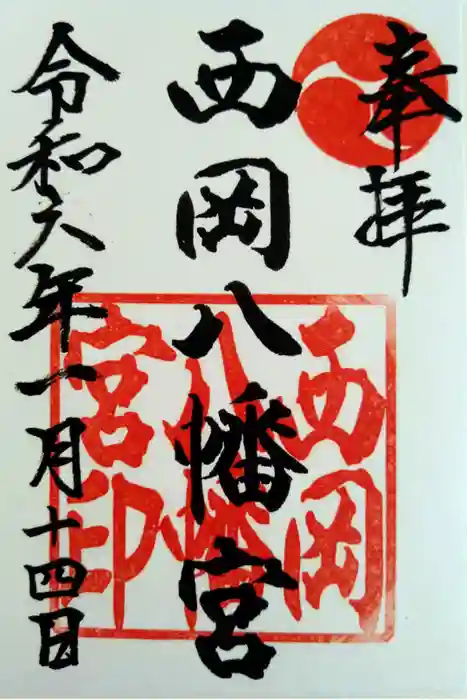 奉拝
西岡八幡宮
西岡
八幡
宮印
令和六年一月十四日